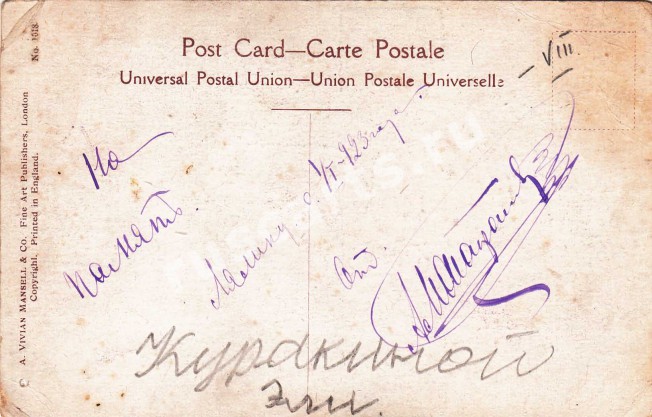 Post Card—Carte Postale
Universal Postal Union—Union Postale Universelle
No. 1018
© A. VIVIAN MANSELL & Co. Fine Art Publishers, London
Copyright. Printed in England.
– VIII
На
память.
VI–923 года.
От.
Куракиной
Эли.